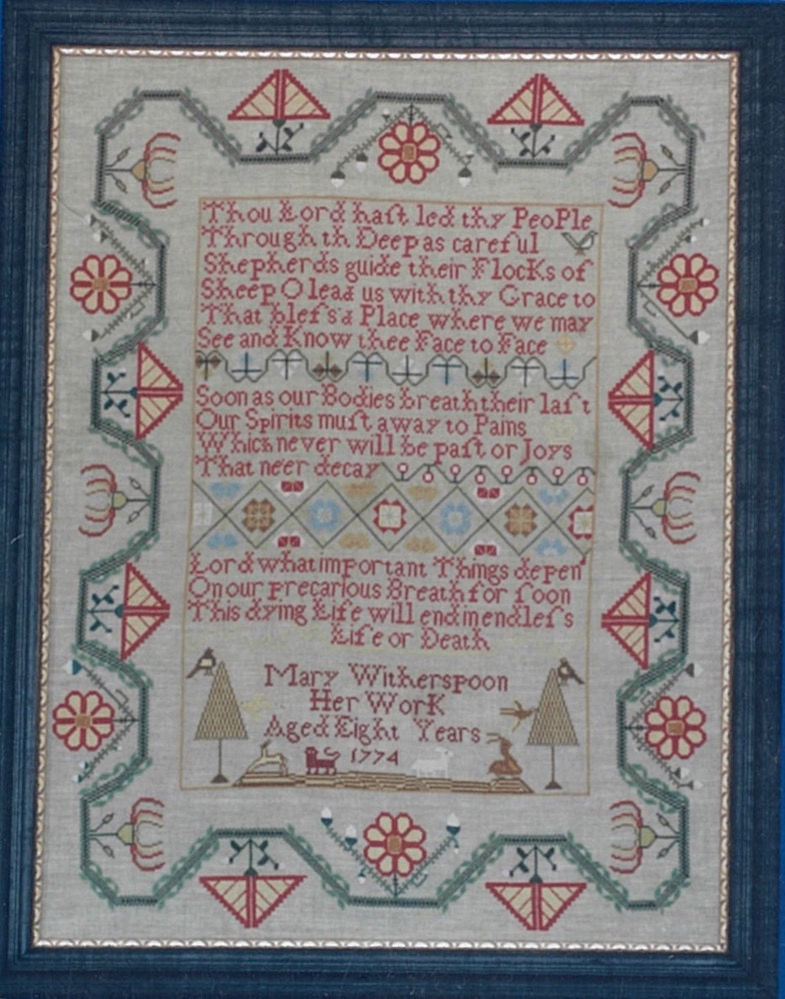 Thou Lord haſt led thy PeoPle
Through th Deep as careful
Shepherds guide their FlocKs of
Sheep O lead us with thy Grace to
That bleſs'd Place where we may
See and Know thee Face to Face
Soon as our Bodies breath their laſt
Our Spirits muſt away to Pains
Which never will be paſt or Joys
That neer decay
Lord what important Things depen'
On our precarious Breath for ſoon
This dying Life will end in endleſs
Life or Death
Mary Witherspoon
Her WorK
Aged Eight Years
1774